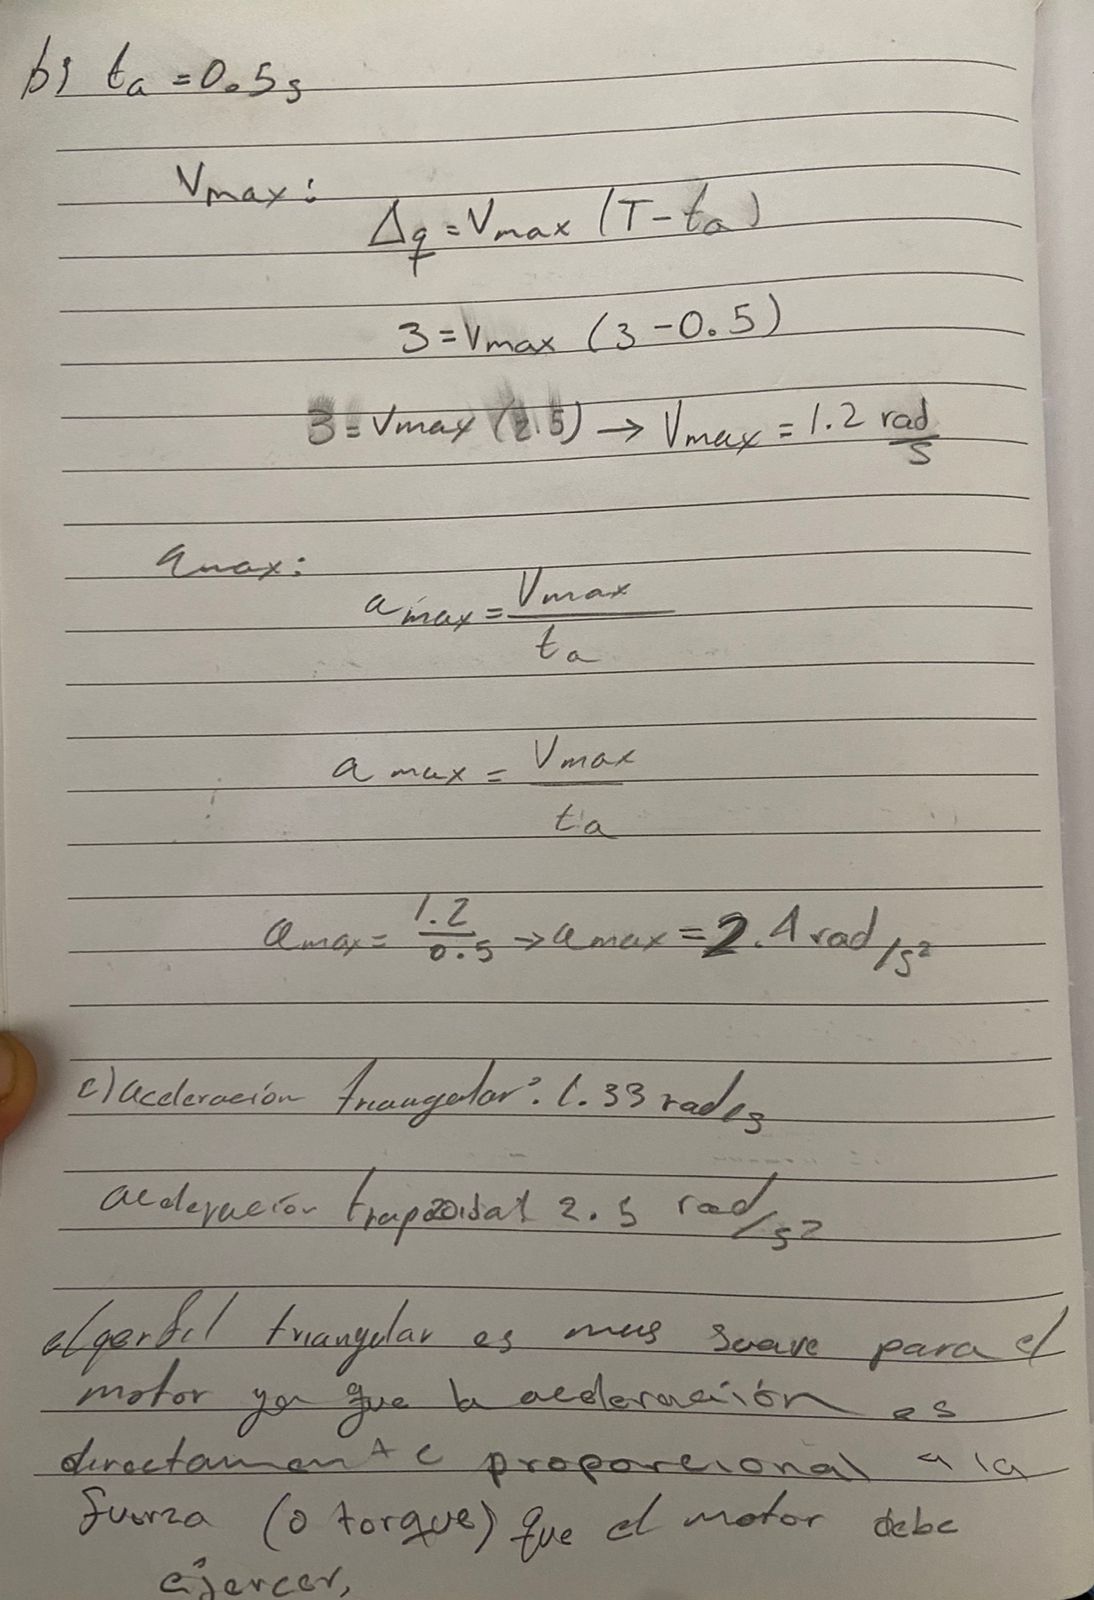 b) ta = 0.5 s
Vmax:
Δq = Vmax (T - ta)
3 = Vmax (3 - 0.5)
3 = Vmax (2.5) → Vmax = 1.2 rad/s
amax:
amax = Vmax / ta
amax = Vmax / ta
amax = 1.2 / 0.5 → amax = 2.4 rad/s²
c) aceleración triangular: 1.33 rad/s
aceleración trapzoidal 2.5 rad/s²
el perfil triangular es mus suave para el
motor ya que la aceleración es
directamente proporcional a la
fuerza (o torque) que el motor debe
ejercer,